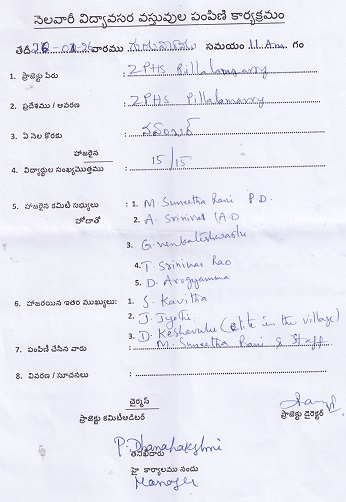 నెలవారీ విద్యావసర వస్తువుల పంపిణి కార్యక్రమం
తేదీ వారము గురువారము సమయం 11 Am గం
1. ప్రాజెక్టు పేరు : ZPHS Pillalamarry
2. ప్రదేశము / ఆవరణ : ZPHS Pillalamarry
3. ఏ నెల కొరకు : నవంబర్
హాజరైన
4. విద్యార్థుల సంఖ్యమొత్తము : 15/15
5. హాజరైన కమిటి సభ్యులు : 1. M. Suneetha Rani P.D.
హోదాతో 2. A. Srinivas (A.D
3. G. Venkateshwarlu
4. T. Srinivas Rao
5. D. Arogyamma
6. హాజరయిన ఇతర ముఖ్యులు: 1. S. Kavitha
2. J. Jyothi
3. D. Keshavulu (elite in the village)
7. పంపిణి చేసిన వారు : M. Suneetha Rani & Staff
8. వివరణ / సూచనలు :
చైర్మన్
ప్రాజెక్టు కమిటిఆడిటర్ ప్రాజెక్టు డైరెక్టర్
P. Dhanalakshmi
తనిఖీదారు
హై కార్యాలము నందు
Manager